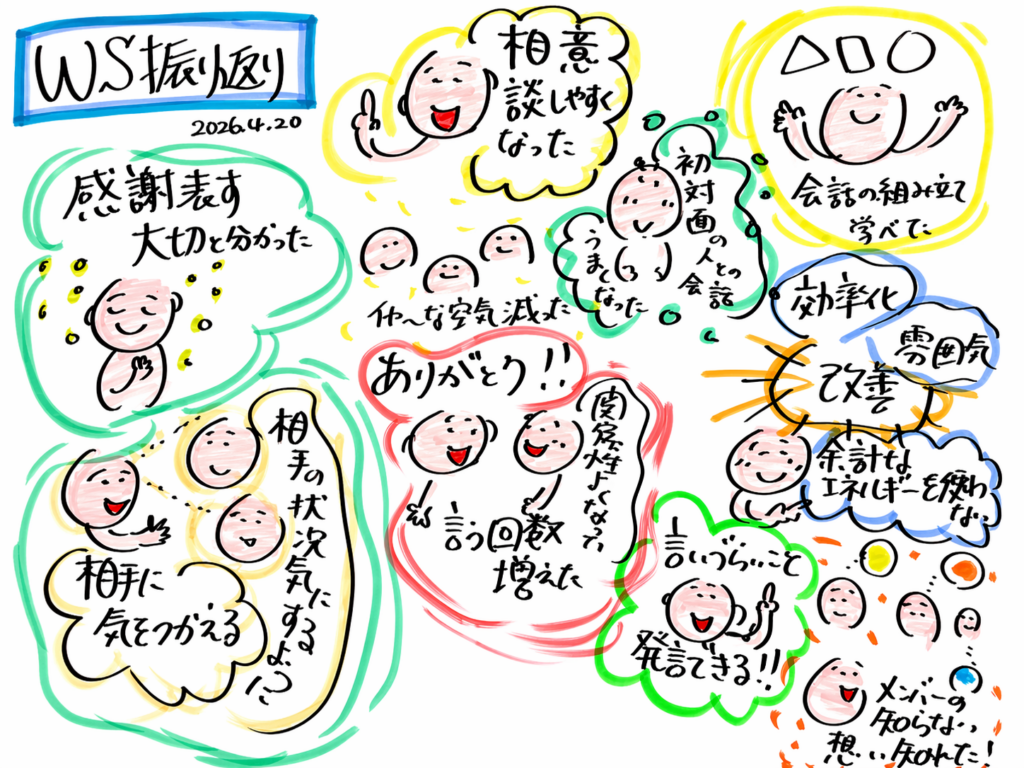 WS振り返り
2026.4.20
感謝表す
大切と分かった
相談しやすく
なった
初対面の人との会話
うまくなった
会話の組み立て
学べた
イヤ〜な空気減った
ありがとう!!
言う回数
増えた
よくなった
効率化
雰囲気
改善
余計な
エネルギーを使わ
ない
相手の状況気にする
相手に
気をつかえる
言いづらいこと
発言できる!!
メンバーの
知らない
想い知れた!